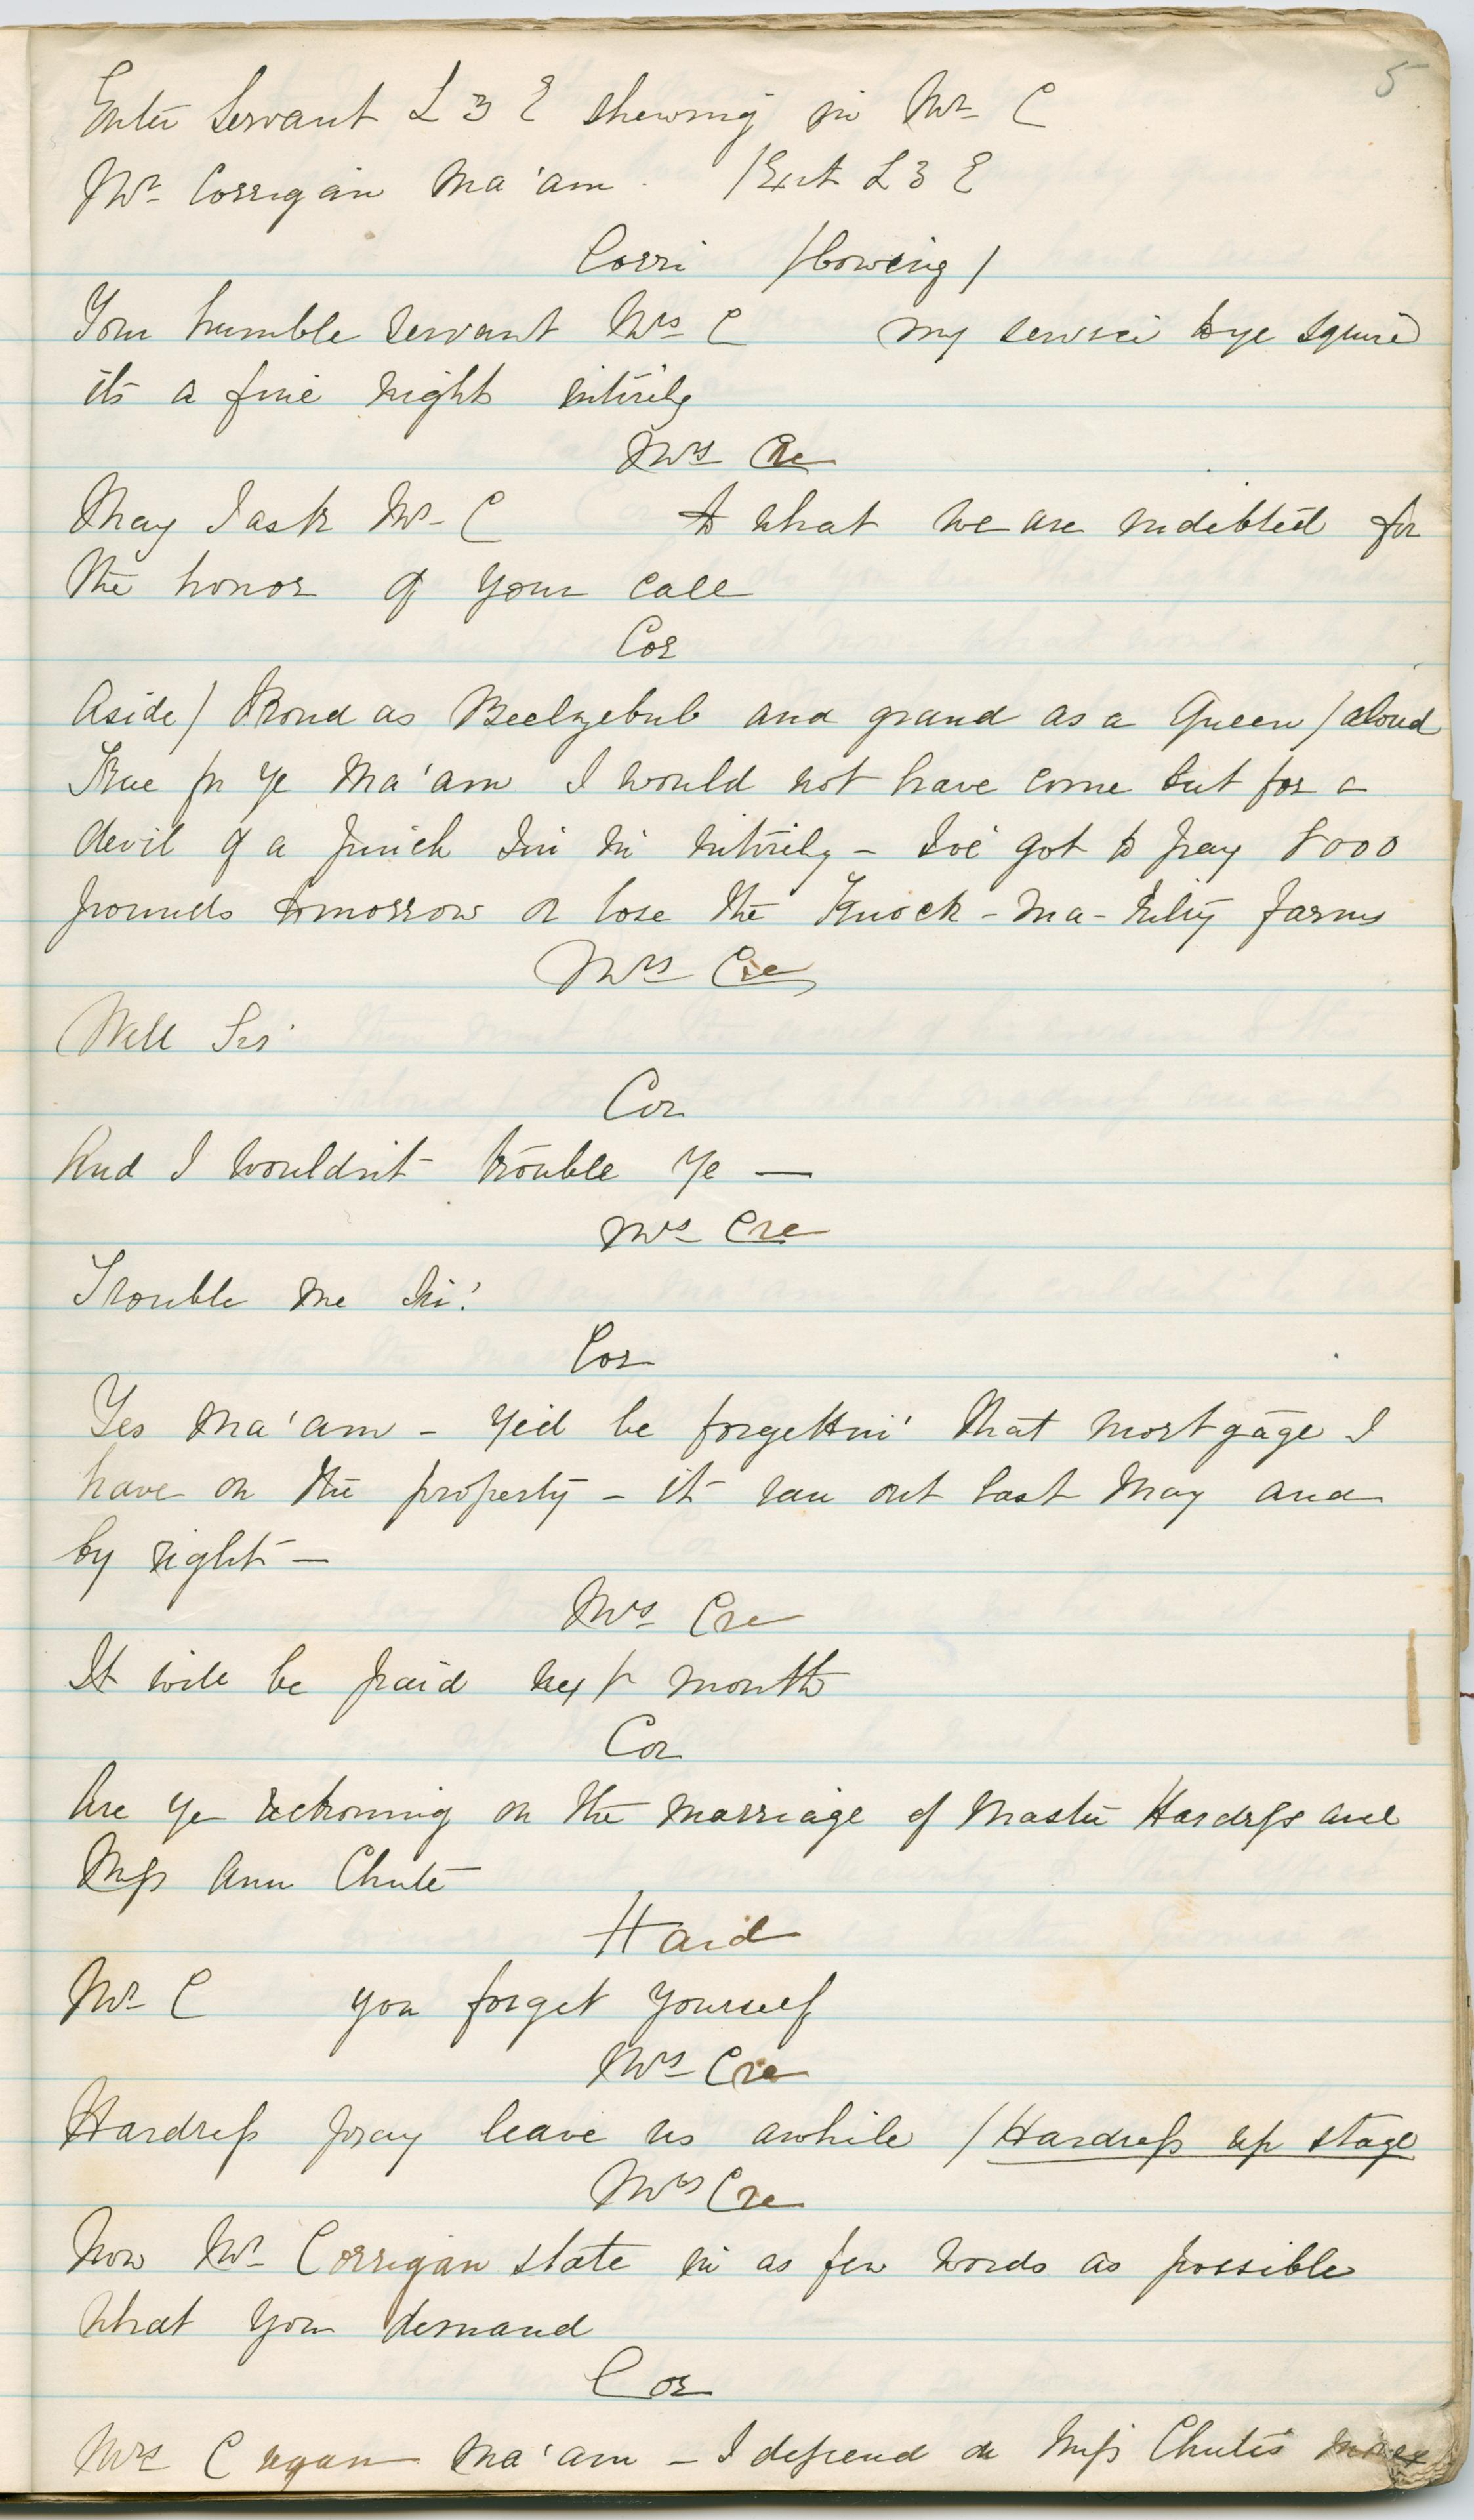 5
Enter Servant L 3 E shewing in Mr C
Mr Corrigan Ma'am. /Exit L 3 E
Corri /bowing/
Your humble servant Mrs C my service to ye Squire
its a fine night intirely
Mrs Cre
May I ask Mr C to what we are indebted for
the honor of your call
Cor
Aside/ Proud as Beelzebub and grand as a Queen /aloud
True for ye Ma'am I would not have come but for a
devil of a pinch I'm in intirely - I've got to pay 8000
pounds tomorrow or lose the Knock-ma- farms
Mrs Cre
Well Sir
Cor
And I wouldn't trouble ye —
Mrs Cre
Trouble me Sir!
Cor
Yes Ma'am - Ye'd be forgettin' that mortgage I
have on the property - it ran out last May and
by right —
Mrs Cre
It will be paid next month
Cor
Are ye reckoning on the marriage of Master Hardress and
Miss Ann Chute
Hard
Mr C you forget yourself
Mrs Cre
Hardress pray leave us awhile /Hardress up stage
Mrs Cre
Now Mr Corrigan state in as few words as possible
what you demand
Cor
Mrs Cregan Ma'am - I depend on Miss Chute's money